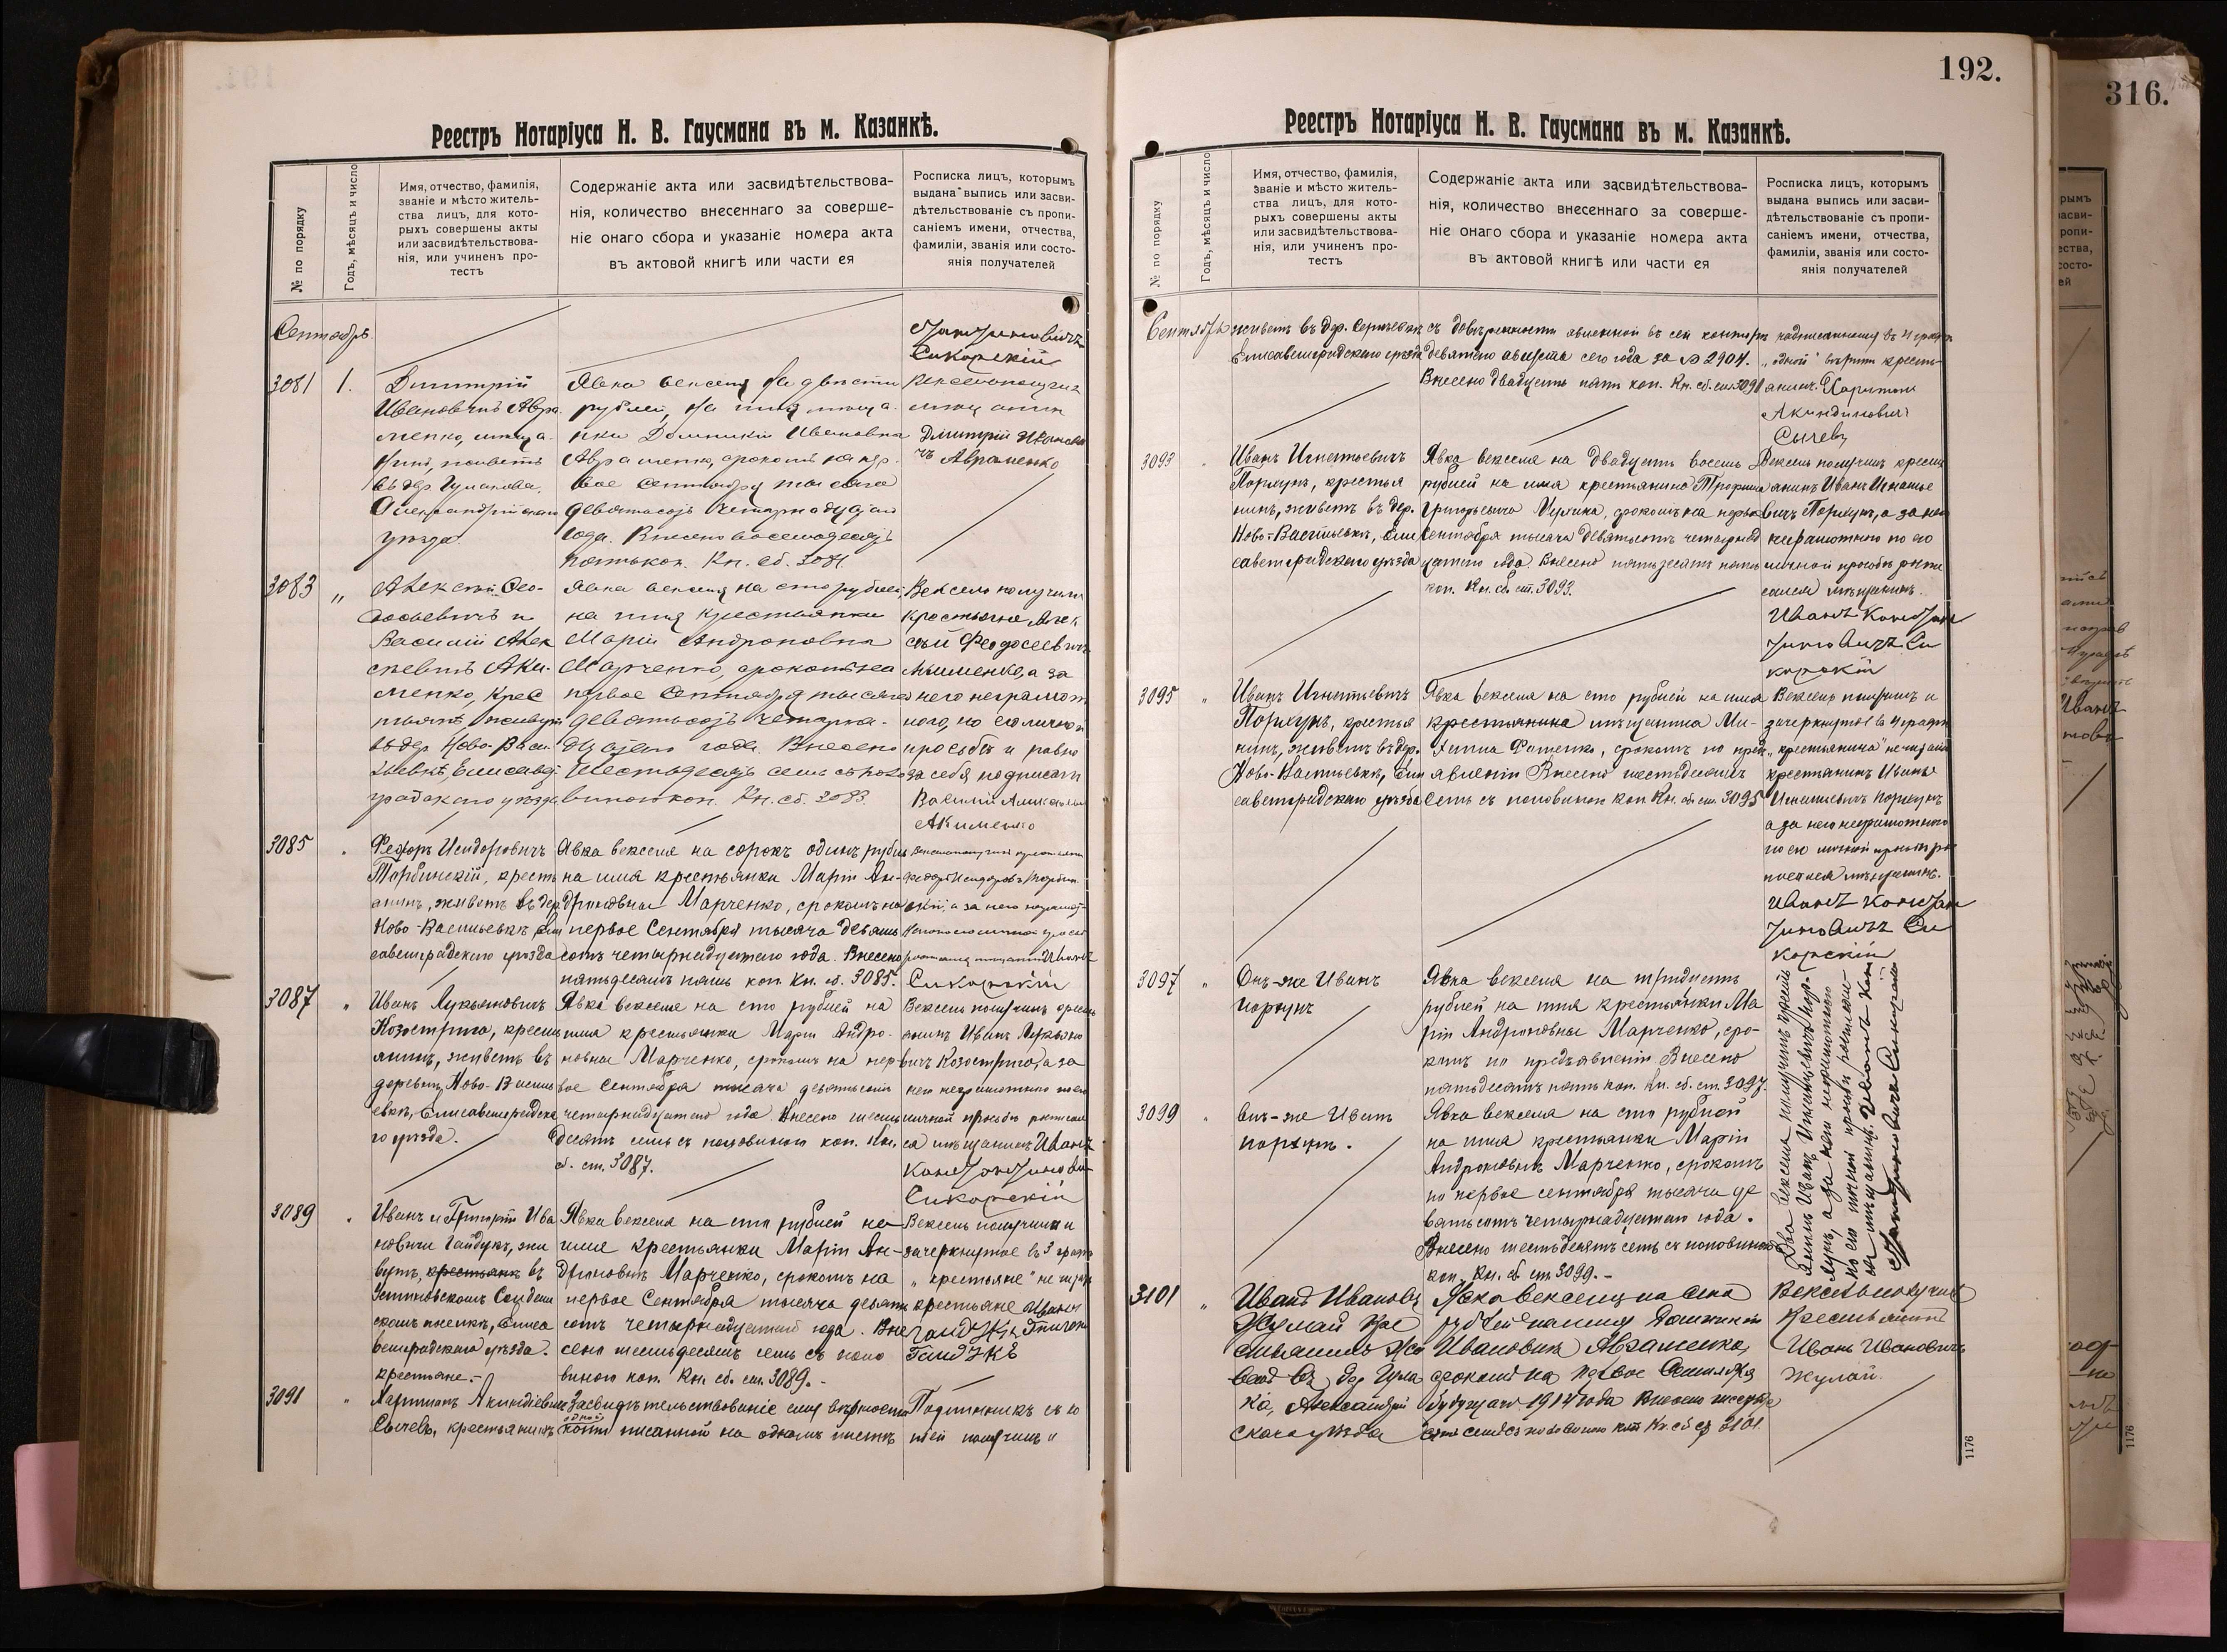 Реестръ Нотаріуса Н. В. Гаусмана въ м. Казанкѣ.
№ по порядку
Годъ, мѣсяцъ и число
Имя, отчество, фамилія,
званіе и мѣсто житель-
ства лицъ, для кото-
рыхъ совершены акты
или засвидѣтельствова-
нія, или учиненъ про-
тестъ
Содержаніе акта или засвидѣтельствова-
нія, количество внесеннаго за соверше-
ніе онаго сбора и указаніе номера акта
въ актовой книгѣ или части ея
Росписка лицъ, которымъ
выдана выпись или засви-
дѣтельствованіе съ пропи-
саніемъ имени, отчества,
фамиліи, званія или состо-
янія получателей
Сентябрь
Сикорскій
3081
1.
Димитрій
Ивановичъ Авра-
менко, мѣща-
нинъ, живетъ
въ дер.
Александрійскаго
уѣзда.
Явка векселя на двѣсти
рублей, на имя мѣща-
нки Домникіи Ивановны
Авраменко, срокомъ на пер-
вое Сентября тысяча
девятьсотъ четырнадцатаго
года. Внесено восемьдесятъ
пять коп. Кн. сб. 3081.
Дмитрій Иванови
чъ Авраменко
3083
„
Алексѣй Фео-
досьевичъ и
Василій Алек
сѣевичъ Аки-
менко, крес
тьяне, живутъ
въ дер. Ново-Васи-
льевкѣ, Елисавет-
градскаго уѣзда
Явка векселя на сто рублей
на имя крестьянки
Маріи Андроновны
Марченко, срокомъ на
первое Сентября тысяча
девятьсотъ четырна-
дцатаго года. Внесено
шестьдесятъ семь съ поло
виною коп. Кн. сб. 3083.
Вексель получили
крестьяне Алек
сѣй Феодосеевичъ
Акименко, а за
него неграмот
наго, по его личной
просьбѣ и равно
за себя подписался
Василій Алексѣев
Акименко
3085
Федоръ Исидоровичъ
Торбинскій, кресть
янинъ, живетъ въ дер
Ново-Васильевкѣ Ели
саветградскаго уѣзда
Явка векселя на сорокъ одинъ рубль
на имя крестьянки Маріи Ан-
дроновны Марченко, срокомъ на
первое Сентября тысяча девять
сотъ четырнадцатаго года. Внесено
пятьдесятъ пять коп. Кн. сб. 3085.
Сикорскій
3087
„
Иванъ Лукьяновичъ
Козострига, кресть
янинъ, живетъ въ
деревнѣ Ново-Василь
евкѣ, Елисаветградска
го уѣзда.
Явка векселя на сто рублей на
имя крестьянки Маріи Андро-
новны Марченко, срокомъ на пер
вое Сентября тысяча девятьсотъ
четырнадцатаго года Внесено шесть
десятъ семь съ половиною коп. Кн.
сб. ст. 3087.
Вексель получилъ кресть
янинъ Иванъ Лукьяно
вичъ Козострига, а за
него неграмотнаго по его
личной просьбѣ расписал
ся мѣщанинъ Иванъ
Сикорскій
3089
Иванъ и Григорій Ива
новичи Гайдукъ, жи
вутъ, крестьяне въ
скомъ поселкѣ, Елиса
ветградскаго уѣзда.
крестьяне.-
Явка векселя на сто рублей на
имя крестьянки Маріи Ан-
дроновны Марченко, срокомъ на
первое Сентября тысяча девять
сотъ четырнадцатаго года. Вне
сено шестьдесятъ семь съ поло
виною коп. Кн. сб. ст. 3089.-
Вексель получили и
зачеркнутое въ 3 графѣ
„крестьяне" не читать
крестьяне Иванъ
Гайдукъ
3091
„
Сычевъ, крестьянинъ
Засвидѣтельствованіе сему вѣрности
одной
копіи писанной на одномъ листѣ
Подлинникъ съ ко
піей получилъ и

192.
Реестръ Нотаріуса Н. В. Гаусмана въ м. Казанкѣ.
№ по порядку
Годъ, мѣсяцъ и число
Имя, отчество, фамилія,
званіе и мѣсто житель-
ства лицъ, для кото-
рыхъ совершены акты
или засвидѣтельствова-
нія, или учиненъ про-
тестъ
Содержаніе акта или засвидѣтельствова-
нія, количество внесеннаго за соверше-
ніе онаго сбора и указаніе номера акта
въ актовой книгѣ или части ея
Росписка лицъ, которымъ
выдана выпись или засви-
дѣтельствованіе съ пропи-
саніемъ имени, отчества,
фамиліи, званія или состо-
янія получателей
Сентябрь
живетъ въ дер. Сергѣевкѣ
Елисаветградскаго уѣзда
съ довѣренности явленной въ сей конторѣ
девятаго августа сего года за № 2904.
Внесено двадцать пять коп. Кн. сб. ст. 3091
надписанному въ 4 графѣ
„одной" вѣрить кресть-
янинъ Харитонъ
Акиндиновичъ
Сычевъ
3093
Иванъ Игнатьевичъ
Поркунъ, крестья
нинъ, живетъ въ дер.
Ново-Васильевкѣ, Ели
саветградскаго уѣзда
Явка векселя на двадцать восемь
рублей на имя крестьянина Трофима
Григорьевича Чулика, срокомъ на первое
Сентября тысяча девятьсотъ четырнад
цатаго года. Внесено пятьдесятъ пять
коп. Кн. сб. ст. 3093.
Вексель получилъ кресть
янинъ Иванъ Игнатье
вичъ Поркунъ, а за него
неграмотнаго по его
личной просьбѣ распи
сался мѣщанинъ
Иванъ Констан
тиновичъ Си
корскій
3095
„
Иванъ Игнатьевичъ
Поркунъ, крестья
нинъ, живетъ въ дер.
Ново-Васильевкѣ, Ели
саветградскаго уѣзда
Явка векселя на сто рублей на имя
крестьянина мѣщанина Ми-
хаила Фатенко, срокомъ по предъ
явленіи Внесено шестьдесятъ
семь съ половиною коп Кн. сб. ст. 3095
Вексель получилъ и
зачеркнутое въ 4 графѣ
„крестьянина" не читать
крестьянинъ Иванъ
Игнатьевичъ Поркунъ
а за него неграмотнаго
по его личной просьбѣ рас
писался мѣщанинъ.
Иванъ Констан
тиновичъ Си
корскій
3097
„
Онъ-же Иванъ
Поркунъ
Явка векселя на тридцать
рублей на имя крестьянки Ма
ріи Андроновны Марченко, сро-
комъ по предъявленіи Внесено
пятьдесятъ пять коп. Кн. сб. ст. 3097.
3099
„
Онъ-же Иванъ
Поркунъ.
Явка векселя на сто рублей
на имя крестьянки Маріи
Андроновны Марченко, срокомъ
на первое сентября тысяча де
вятьсотъ четырнадцатаго года.
Внесено шестьдесятъ семь съ половиною
коп. Кн. сб. ст. 3099.-
Два векселя получилъ кресть
янинъ Иванъ Игнатьевичъ Пор-
кунъ, а за него неграмотнаго
по его личной просьбѣ росписал-
ся мѣщанинъ. Иванъ Кон
стантиновичъ Сикорскій
3101
„
Иванъ Ивановъ
Жулай кре
стьянинъ жи
ветъ въ дер Гула
ка, Александрій
скаго уѣзда
Явка векселя на сто
рублей на имя Домникіи
Ивановны Авраменко,
срокомъ на первое Сентября
будущаго 1914 года Внесено шестьде
сятъ семь съ половиною коп Кн. сб ст 3101
Вексель получилъ
Крестьянинъ
Иванъ Ивановичъ
Жулай.
1176
316.
рымъ
засви-
ропи-
ества,
состо-
ей
1176